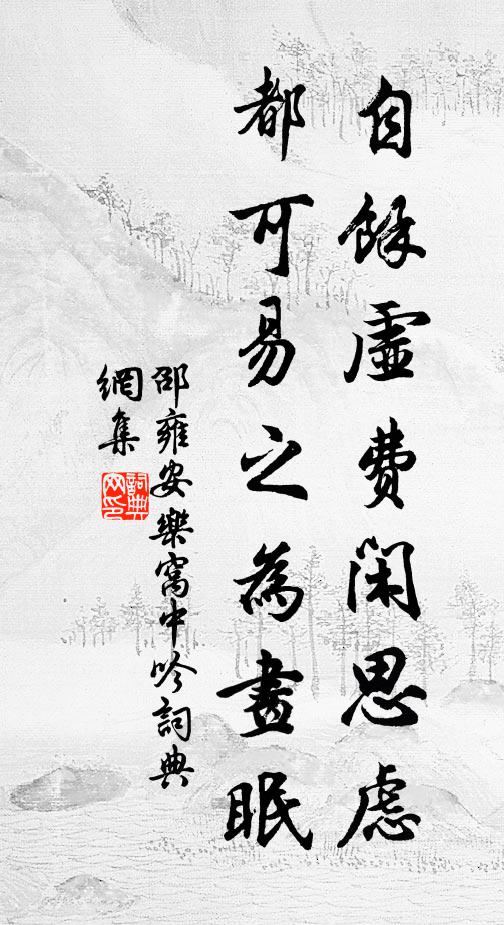 自餘虛費閑思慮
都可易之為晝眠
邵雍安樂窩中吟詞典
網集
詞典
网印